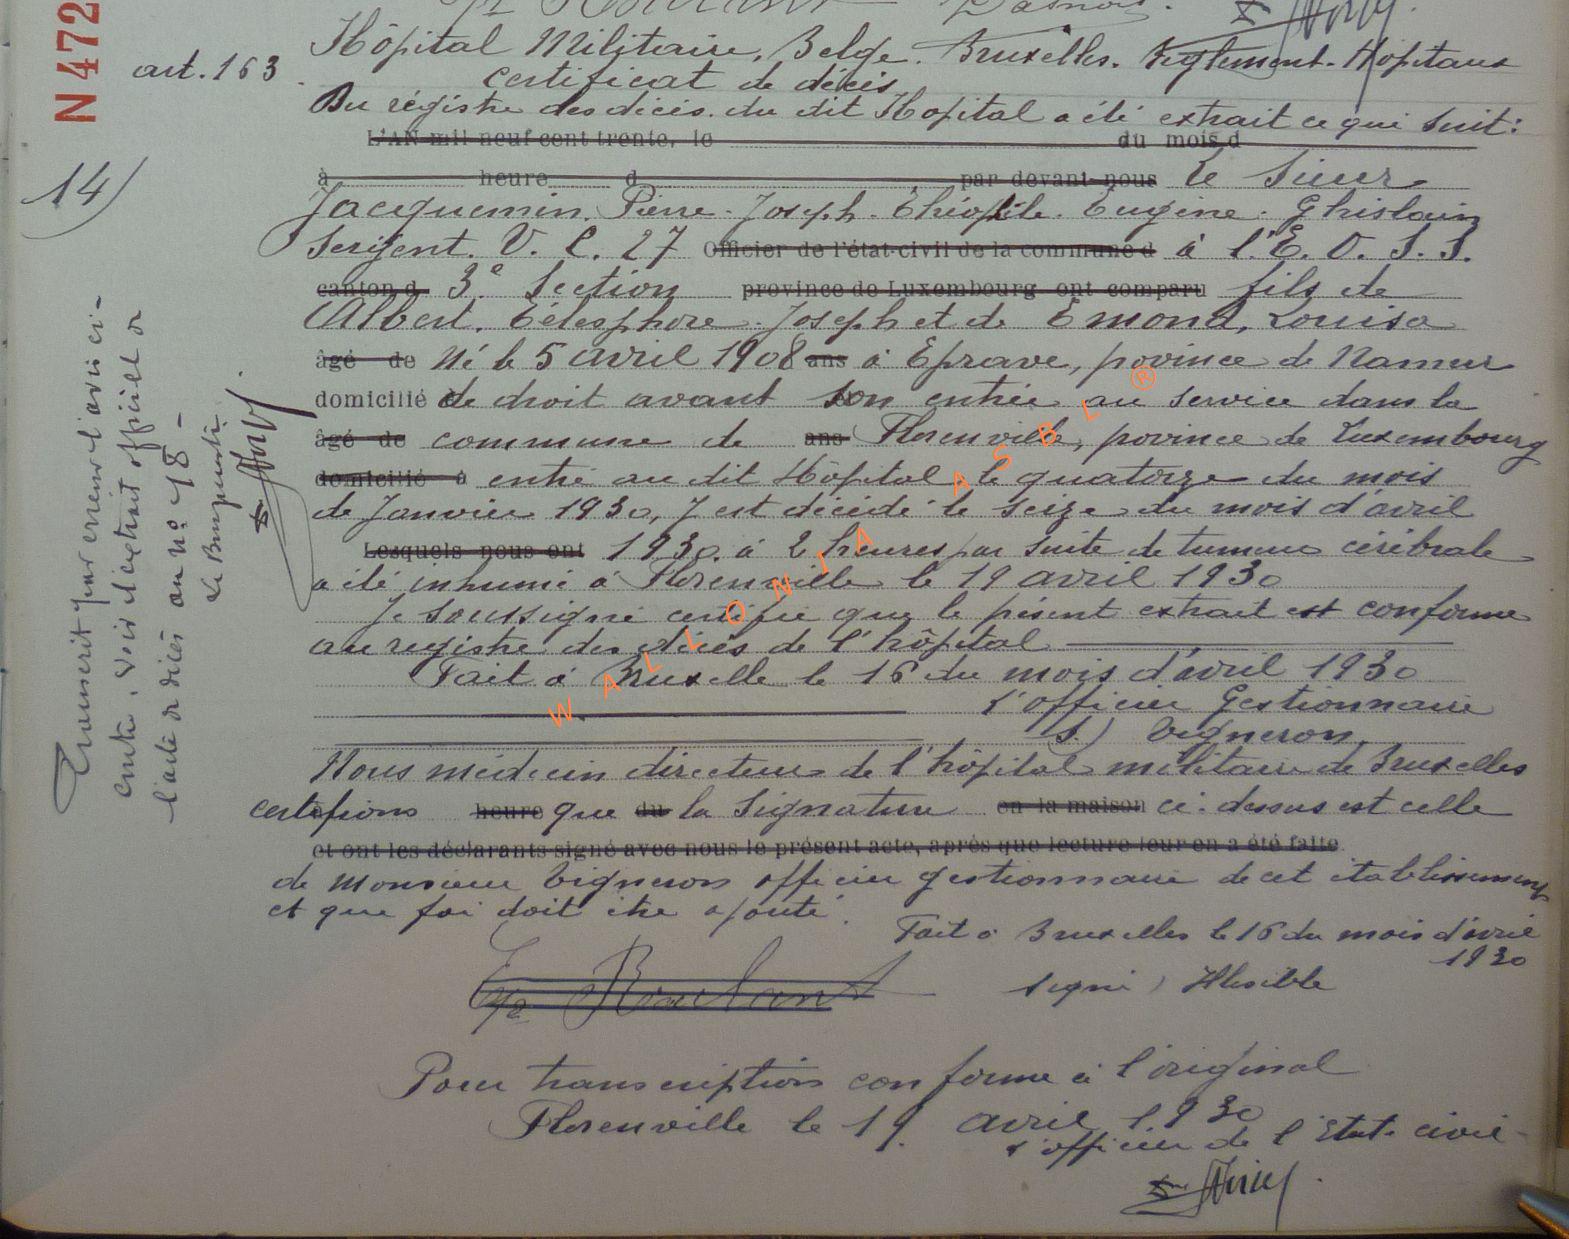 N 472
art. 163
Hôpital Militaire. Belge. Bruxelles. Règlement. Hôpitaux
certificat de décès
Du régistre des décès. du dit Hopital a été extrait ce qui suit:
L'AN mil neuf cent trente, le du mois d
14)
à heure d par devant nous le Sieur
Jacquemin. Pierre. Joseph. Théophile. Eugène. Ghislain
Sergent. V. C. 27 Officier de l'état-civil de la commune d à l'E. O. S. S.
canton d 3e Section province de Luxembourg ont comparu fils de
Albert. Télesphore. Joseph et de Emond, Louisa
âgé de Né le 5 avril 1908 ans à Eprave, province de Namur
domicilié à de droit avant son entrée au service dans la
âgé de commune de ans Florenville, province de Luxembourg
domicilié à entré au dit Hôpital le quatorze du mois
de Janvier 1930, y est décédé le seize du mois d'avril
Lesquels nous ont 1930. à 2 heures par suite de tumeur cérébrale
a été inhumé à Florenville le 19 avril 1930
Je soussigné certifie que le présent extrait est conforme
au registre des décès de l'hôpital
Fait à Bruxelle le 16 du mois d'avril 1930
l'officier Gestionnaire
S.) Vigneron.
Nous médecin directeur de l'hôpital militaire de Bruxelles
certifions heure que du la Signature en la maison ci-dessus est celle
et ont les déclarants signé avec nous le présent acte, après que lecture leur en a été faite
de Monsieur Vigneron officier gestionnaire de cet établissement
et que foi doit être ajouté.
Fait à Bruxelles le 16 du mois d'avril
1930
signé) Illisible
Pour transcription conforme à l'original
Florenville le 19 avril 1930
l'officier de l'Etat-civil
Transcrit par erreur l'avis ci-
contre. Voir l'extrait officiel or
l'acte de décès au no 18 -
WALLONIA ASBL ®